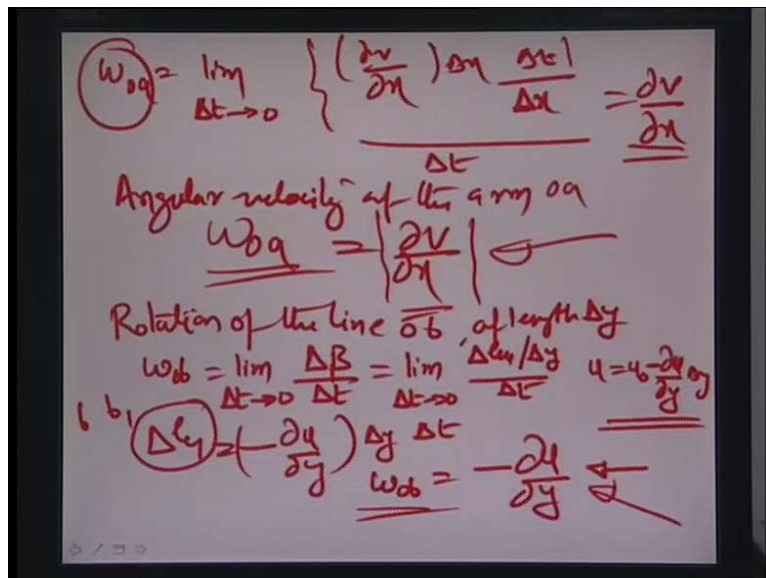 ω_oa = lim Δt→0 { (∂v/∂x) Δx Δt 1/Δx / Δt = ∂v/∂x
Angular velocity of the arm oa
ω_oa = |∂v/∂x|
Rotation of the line ob, of length Δy
ω_ob = lim Δt→0 Δβ/Δt = lim Δt→0 /Δy / Δt u = u₀ - ∂u/∂y Δy
b b₁ = (-∂u/∂y) Δy Δt
ω_ob = -∂u/∂y